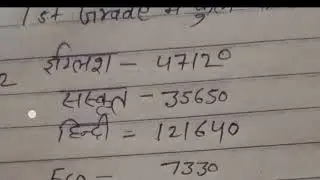 1st Grade में कुल
2 इंग्लिश – 47120
संस्कृत – 35650
हिन्दी = 121640
7330